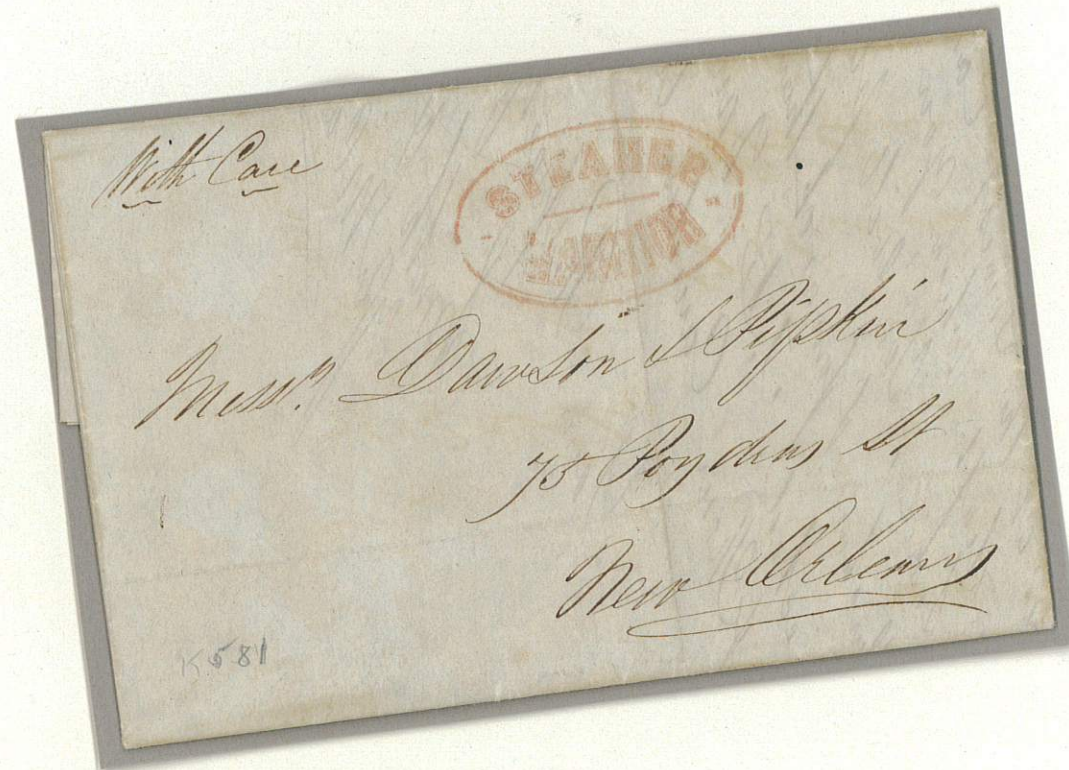 With Care
STEAMER
Messrs. Dawson & Pipkin
75 Poydras St
New Orleans
K581